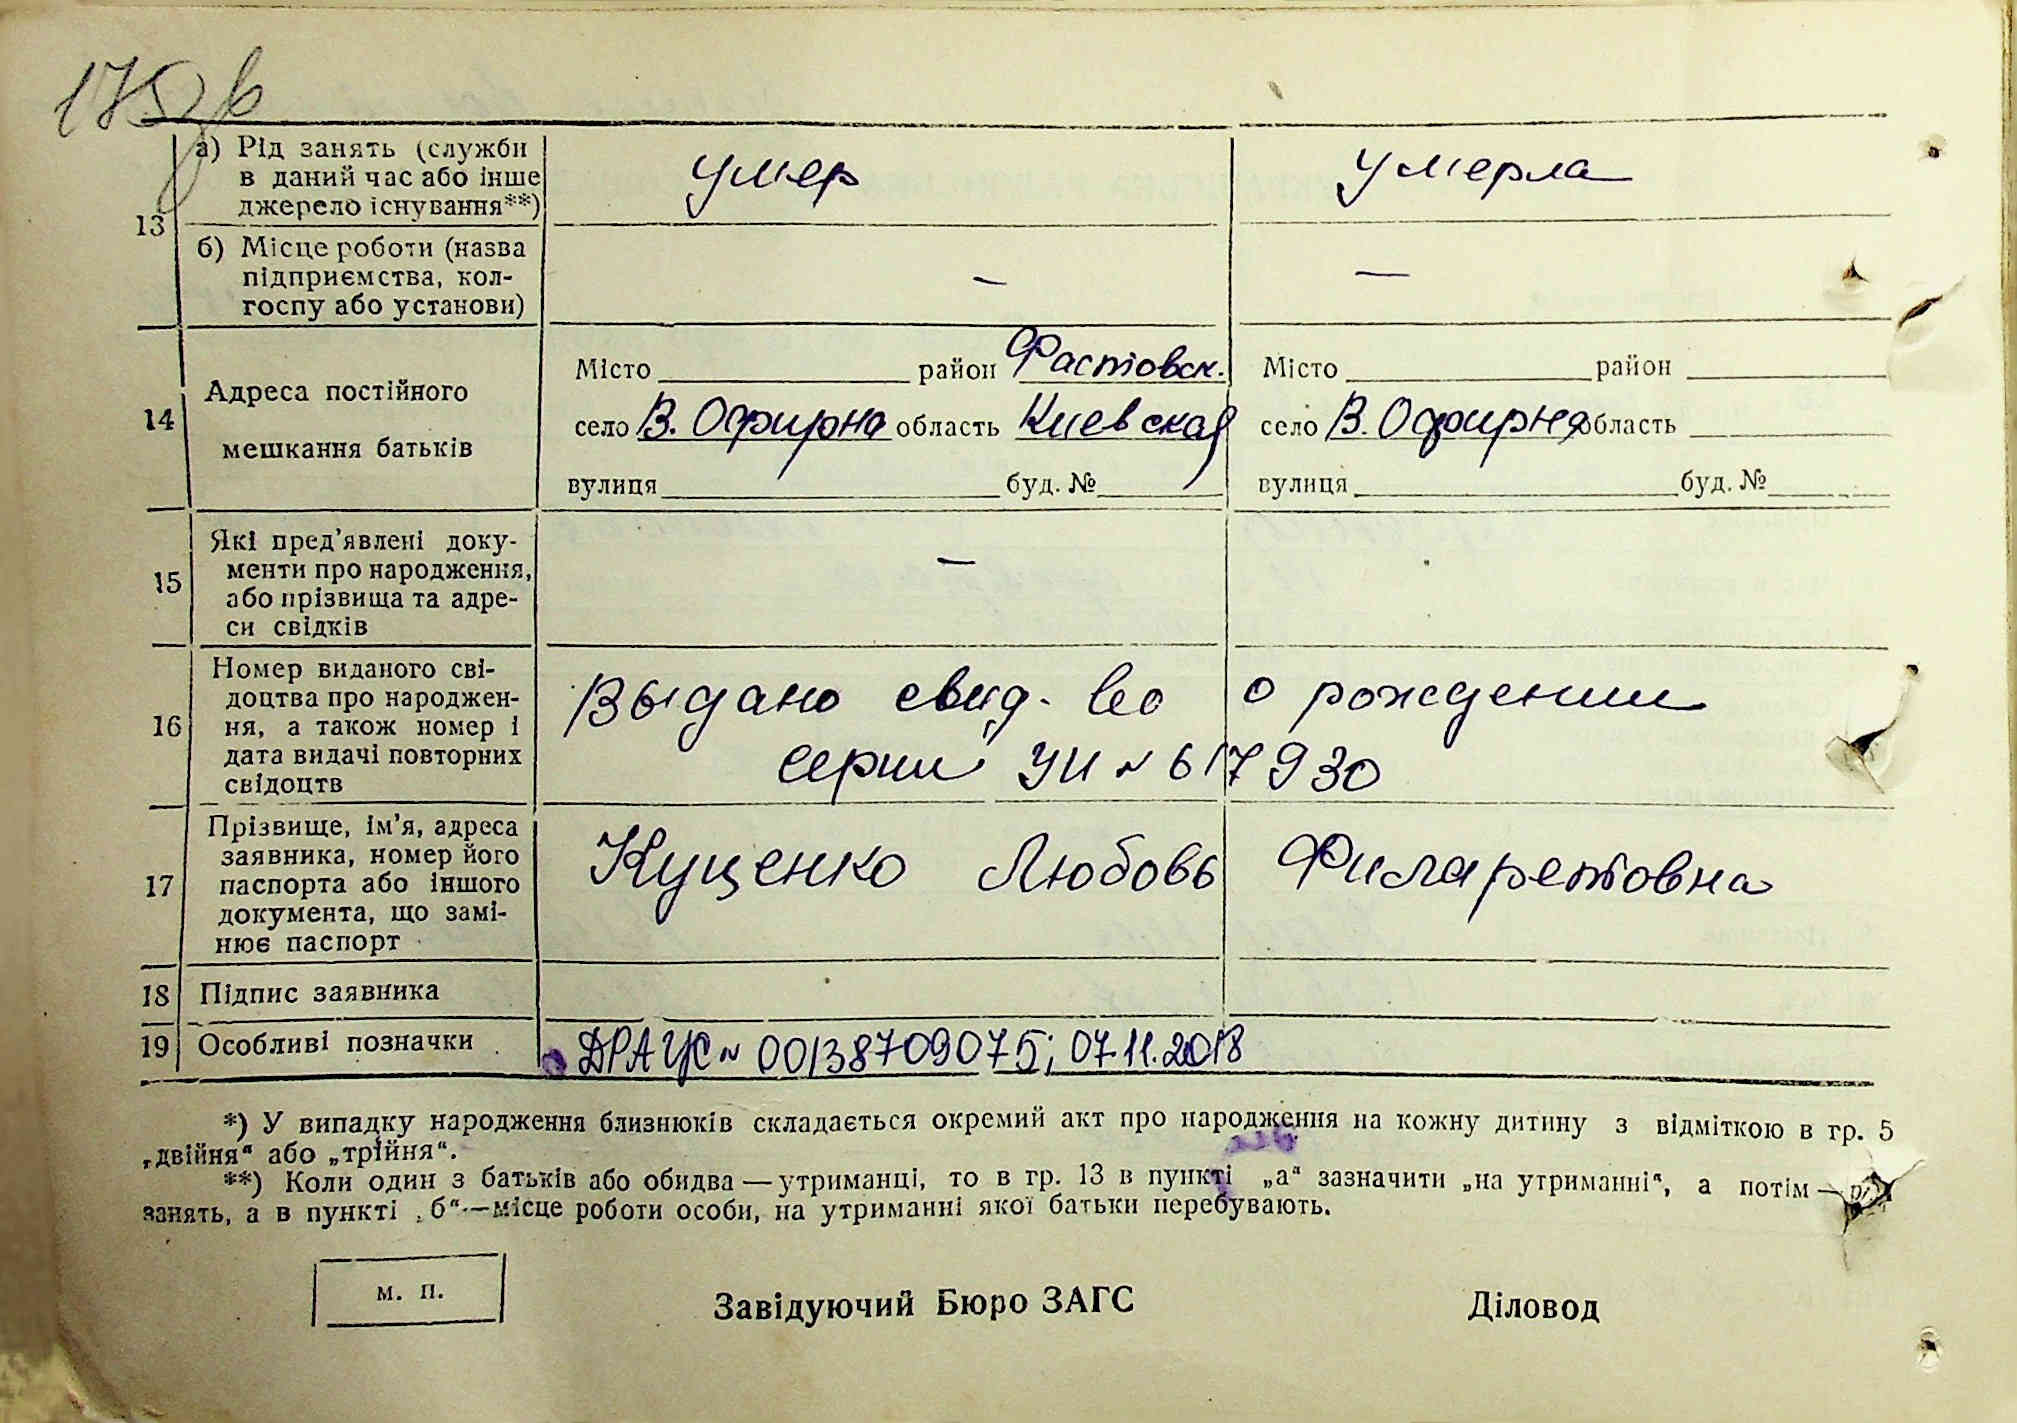 175зв
13
а) Рід занять (служби
в даний час або інше
джерело існування**)
умер
умерла
б) Місце роботи (назва
підприємства, кол-
госпу або установи)
—
—
14
Адреса постійного
мешкання батьків
Місто район Фастовск.
село В. Офирна область Киевская
вулиця буд. №
Місто район
село В. Офирня область
вулиця буд. №
15
Які пред’явлені доку-
менти про народження,
або прізвища та адре-
си свідків
—
16
Номер виданого сві-
доцтва про народжен-
ня, а також номер і
дата видачі повторних
свідоцтв
Выдано свид-во о рождении
серии УИ № 617930
17
Прізвище, ім’я, адреса
заявника, номер його
паспорта або іншого
документа, що замі-
нює паспорт
Куценко Любовь Филаретовна
18 Підпис заявника
19 Особливі позначки
ДРАЦС № 00138709075; 07.11.2018
*) У випадку народження близнюків складається окремий акт про народження на кожну дитину з відміткою в гр. 5
„двійня“ або „трійня“.
**) Коли один з батьків або обидва — утриманці, то в гр. 13 в пункті „а“ зазначити „на утриманні“, а потім —
занять, а в пункті „б“ — місце роботи особи, на утриманні якої батьки перебувають.
м. п.
Завідуючий Бюро ЗАГС
Діловод